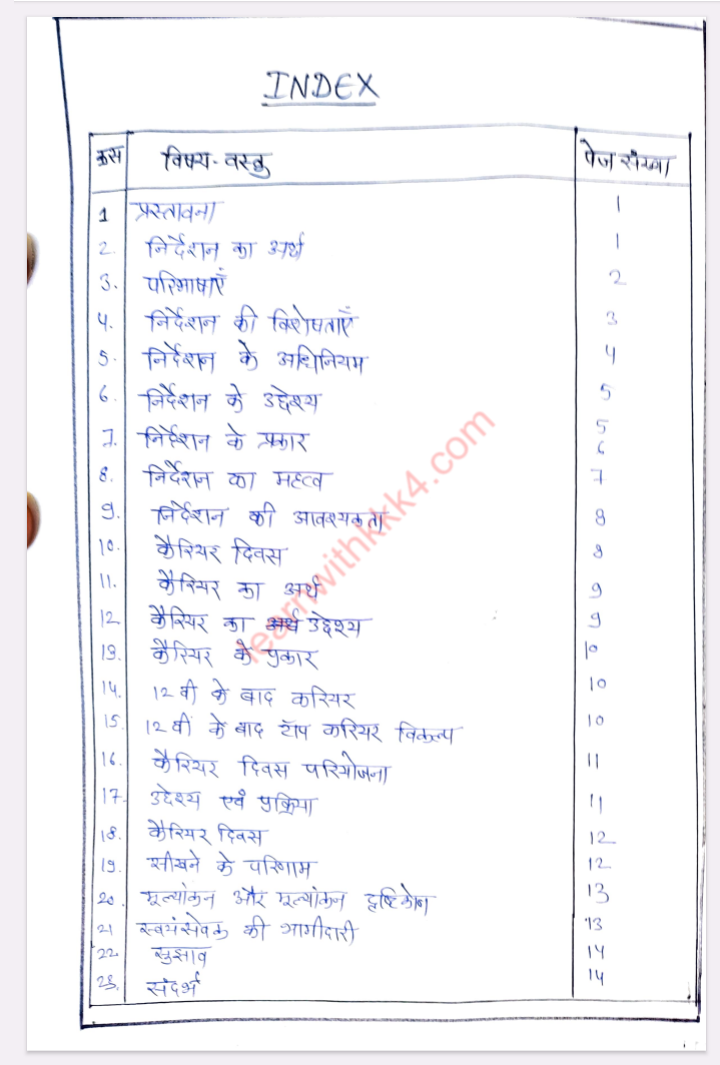 INDEX
क्रस विषय-वस्तु पेज संख्या
1 प्रस्तावना 1
2. निर्देशन का अर्थ 1
3. परिभाषाएँ 2
4. निर्देशन की विशेषताएँ 3
5. निर्देशन के अधिनियम 4
6. निर्देशन के उद्देश्य 5
7. निर्देशन के प्रकार 5 6
8. निर्देशन का महत्व 7
9. निर्देशन की आवश्यकता 8
10. कैरियर दिवस 8
11. कैरियर का अर्थ 9
12 कैरियर का अर्थ उद्देश्य 9
13. कैरियर के प्रकार 10
14. 12 वी के बाद करियर 10
15. 12 वीं के बाद टॉप करियर विकल्प 10
16. कैरियर दिवस परियोजना 11
17. उद्देश्य एवं प्रक्रिया 11
18. कैरियर दिवस 12
19. सीखने के परिणाम 12
20. मूल्यांकन और मूल्यांकन दृष्टिकोण 13
21 स्वयंसेवक की भागीदारी 13
22 सुझाव 14
23. संदर्भ 14
learnwithkkk4.com